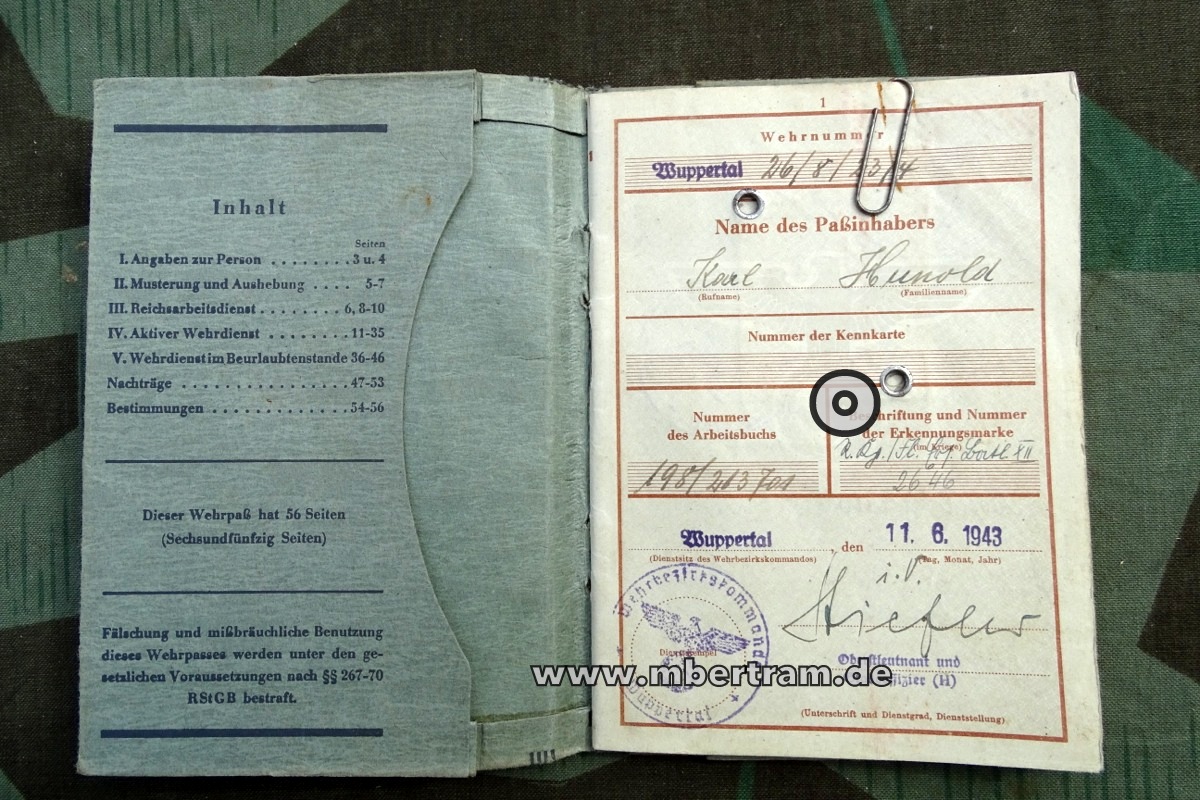 Inhalt
Seiten
I. Angaben zur Person ........ 3 u. 4
II. Musterung und Aushebung .... 5-7
III. Reichsarbeitsdienst ........ 6, 8-10
IV. Aktiver Wehrdienst ........ 11-35
V. Wehrdienst im Beurlaubtenstande 36-46
Nachträge ................ 47-53
Bestimmungen ............. 54-56
Dieser Wehrpaß hat 56 Seiten
(Sechsundfünfzig Seiten)
Fälschung und mißbräuchliche Benutzung
dieses Wehrpasses werden unter den ge-
setzlichen Voraussetzungen nach §§ 267-70
RStGB bestraft.
1
Wehrnummer
Wuppertal 26/8/23/4
Name des Paßinhabers
Karl Hunold
(Rufname) (Familienname)
Nummer der Kennkarte
Nummer
des Arbeitsbuchs
198/213701
und Nummer
der Erkennungsmarke
(im Kriege)
XII
2646
Wuppertal, den 11. 6. 1943
(Dienstsitz des Wehrbezirkskommandos) (Tag, Monat, Jahr)
i.V.
Oberstleutnant und
(H)
(Unterschrift und Dienstgrad, Dienststellung)
Wehrbezirkskommando
Wuppertal
www.mbertram.de